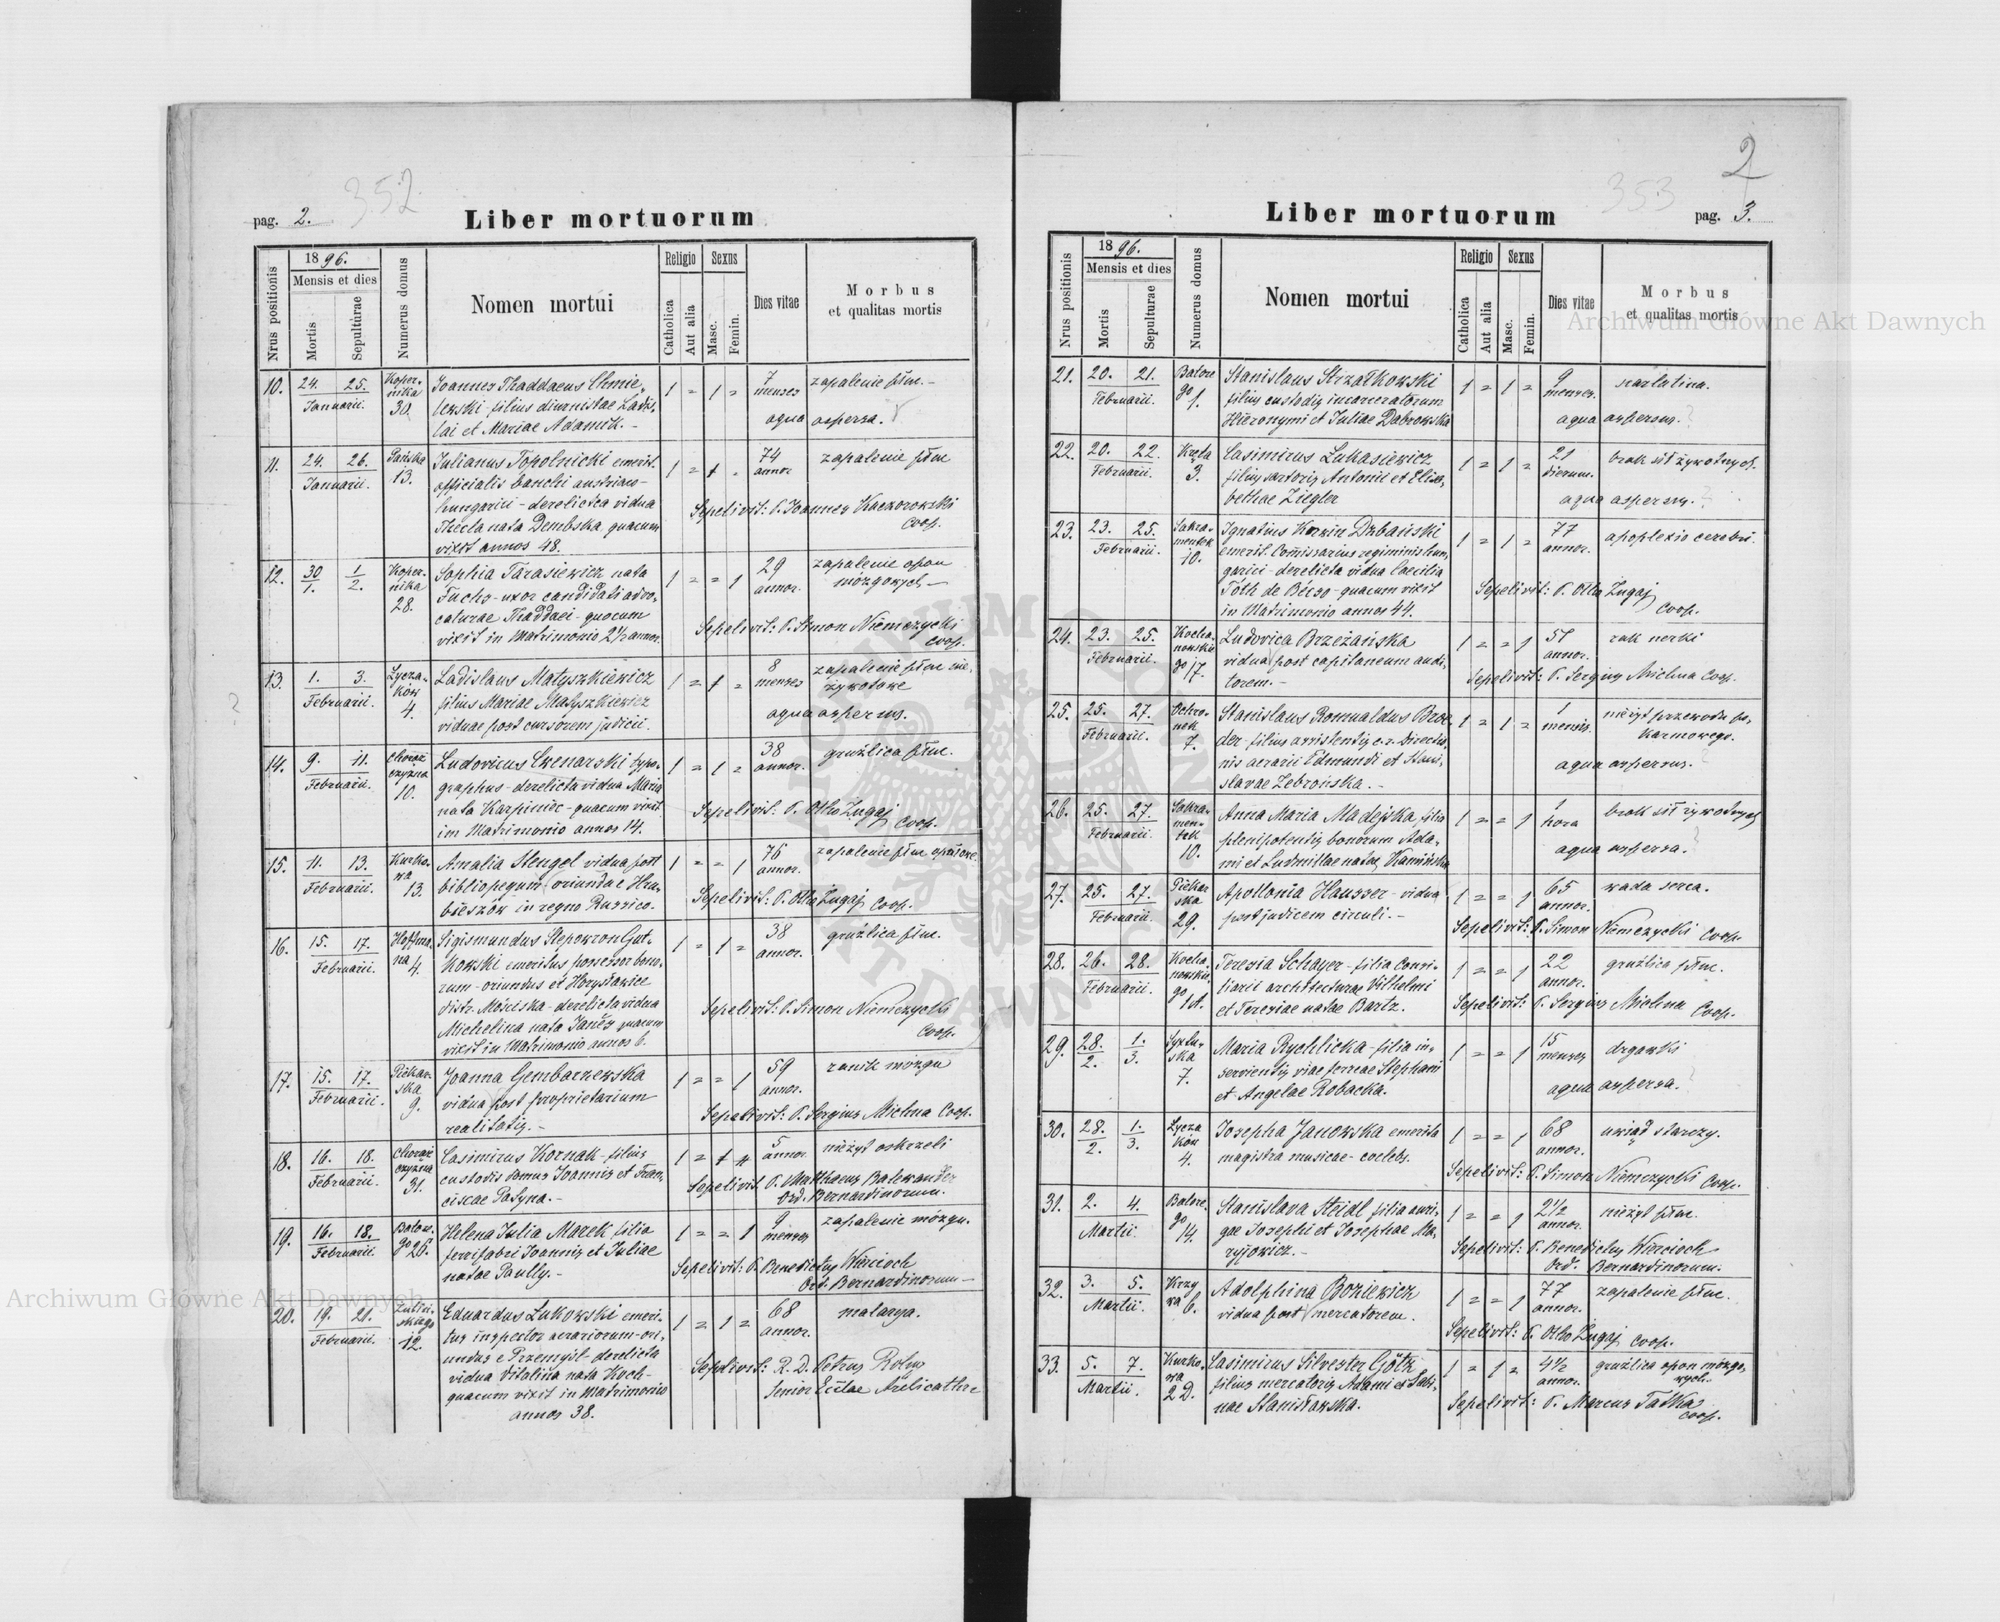 2
352
353
pag. 2.
Liber mortuorum
Nrus positionis
1896.
Mensis et dies
Mortis
Sepulturae
Numerus domus
Nomen mortui
Religio
Catholica
Aut alia
Sexus
Masc.
Femin.
Dies vitae
Morbus
et qualitas mortis
10. 24. 25. Januarii. Koper-nika 30. Joannes Thaddaeus Chmie- 1 = 1 = 7 menses zapalenie płuc.
lewski filius diurnistae Ladis-
lai et Mariae Adamik. aqua aspersa.
11. 24. 26. Januarii. Pańska 13. Julianus Topolnicki emerit. 1 = 1 = 74 annor. zapalenie płuc
officialis banchi austriaco-
hungarici - derelicta vidua Sepelivit: P. Joannes Kaczorowski
Thecla nata Dembska quacum Coop.
vixit annos 48.
12. 30/1. 1/2. Koper-nika 28. Sophia Tarasiewicz nata 1 = = 1 29 annor. zapalenie opon
Fuchs - uxor candidati advo- mózgowych
caturae Thaddaei - quocum Sepelivit: P. Simon Niemczycki
vixit in Matrimonio 2½ annor. Coop.
13. 1. 3. Februarii. Łycza-kow 4. Ladislaus Matyszkiewicz 1 = 1 = 8 menses zapalenie płuc nie-
filius Mariae Matyszkiewicz żywotowe
viduae post cursorem judicii. aqua aspersus.
14. 9. 11. Februarii. Chorąż czyzna 10. Ludovicus Cxenarski typo- 1 = 1 = 38 annor. gruźlica płuc.
graphus - derelicta vidua Maria
nata Karpiniec - quacum vixit Sepelivit: P. Otho Zugaj
in Matrimonio annos 14. Coop.
15. 11. 13. Februarii. Kurko-wa 13. Amalia Stengel vidua post 1 = = 1 76 annor. zapalenie płuc
bibliopegum oriundae Hru-
bieszów in regno Russico. Sepelivit: P. Otho Zugaj Coop.
16. 15. 17. Februarii. Hoffma-na 4. Sigismundus Slepowron Gut- 1 = 1 = 38 annor. gruźlica płuc.
kowski emeritus possessor bono-
rum - oriundus et Horysławice
distr. Mościska - derelicta vidua Sepelivit: P. Simon Niemczycki
Michelina nata Janës quacum Coop.
vixit in Matrimonio annos 6.
17. 15. 17. Februarii. Piekar-ska 9. Joanna Gembarzewska 1 = = 1 59 annor. zanik mózgu
vidua post proprietarium
realitatis. Sepelivit: P. Sergius Michna Coop.
18. 16. 18. Februarii. Chorąż czyzna 31. Casimirus Kornak - filius 1 = 5 annor. nieżyt oskrzeli
custodis domus Joannis et Fran- Sepelivit P. Matthaeus Balewander
ciscae Patyna. Ord. Bernardinorum.
19. 16. 18. Februarii. Batore-go 26. Helena Julia Marek filia 1 = = 1 9 menses zapalenie mózgu.
ferrifabri Joannis et Juliae Sepelivit: P. Benedictus Wiercioch
natae Paully. Ord. Bernardinorum
20. 19. 21. Februarii. 12. Eduardus Lukowski emeri- 1 = 1 = 68 annor. malarya.
tus inspector aerariorum - ori-
undus e Przemyśl - derelicta Sepelivit: R. D. Petrus
vidua Vitalina nata Koch Senior
quacum vixit in Matrimonio
annos 38.
Liber mortuorum
pag. 3.
Nrus positionis
1896.
Mensis et dies
Mortis
Sepulturae
Numerus domus
Nomen mortui
Religio
Catholica
Aut alia
Sexus
Masc.
Femin.
Dies vitae
Morbus
et qualitas mortis
21. 20. 21. Februarii. Batore go 1. Stanislaus Strzałkowski 1 = 1 = 9 menses. szarlatina.
filius custodis incarceratorum
Hieronymi et Juliae Dąbrowska aqua aspersus.
22. 20. 22. Februarii. Kręta 3. Casimirus Lukasiewicz 1 = 1 = 21 dierum. brak sił żywotnych.
filius sartoris Antonii et Elisa-
bethae Ziegler aqua aspersus.
23. 23. 25. Februarii. Sakra-mentek 10. Ignatius Korwin Dzbański 1 = 1 = 77 annor. apoplexio cerebri.
emerit. Comissarius regiminis hun-
garici - derelicta vidua Caecilia
Tóth de Bécso - quacum vixit Sepelivit: P. Otho Zugaj
in Matrimonio annos 44. Coop.
24. 23. 25. Februarii. Kocha-nowskie go 17. Ludovica Brzeżańska 1 = = 1 57 annor. rak nerki
vidua post capitaneum audi-
torem. Sepelivit: P. Sergius Michna Coop.
25. 25. 27. Februarii. Ochro-nek 7. Stanislaus Romualdus Broe- 1 = 1 = 1 mensis. nieżyt przewodu po-
der - filius assistentis c. r. Directio- karmowego.
nis aerarii Edmundi et Stani-
slavae Zebrońska. aqua aspersus.
26. 25. 27. Februarii. Sakra-men-tek 10. Anna Maria Madejska, filia 1 = = 1 1 hora brak sił żywotnych
plenipotentis bonorum Ada-
mi et Ludmillae natae Kamińska aqua aspersa.
27. 25. 27. Februarii. Piekar ska 29. Apollonia Hausser - vidua 1 = = 1 65 annor. wada serca.
post judicem circuli. Sepelivit: P. Simon Niemczycki Coop.
28. 26. 28. Februarii. Kocha-nowskie-go 1A. Teresia Schayer - filia Consi- 1 = = 1 22 annor. gruźlica płuc.
liarii architecturae Vilhelmi
et Teresiae natae Bartz. Sepelivit: P. Sergius Michna Coop.
29. 28./2. 1./3. Syxtu-ska 7. Maria Rychlicka - filia in- 1 = = 1 15 menses drgawki
servientis viae ferreae Stephani
et Angelae Robacka. aqua aspersa.
30. 28./2. 1./3. Łycza kow 4. Josepha Janowska emerita 1 = = 1 68 annor. uwiąd starczy.
magistra musicae - coelebs. Sepelivit: P. Simon Niemczycki Coop.
31. 2. 4. Martii. Batore-go 14. Stanislava Steidl filia auri- 1 = = 1 2½ annor. nieżyt płuc.
gae Josephi et Josephae Ma- Sepelivit: P. Benedictus Wiercioch
ryjowicz. Ord. Bernardinorum.
32. 3. 5. Martii. Krzy wa 6. Adolphina Boziewicz 1 = = 1 77 annor. zapalenie płuc.
vidua post mercatorem. Sepelivit: P. Otho Zugaj Coop.
33. 5. 7. Martii. Kurko-wa 2 D. Casimirus Silvester Götz 1 = 1 = 4½ annor. gruźlica opon mózgo-
filius mercatoris Adami et Sabi- wych.
nae Stanisławska. Sepelivit: P. Marcus Tatka Coop.
Archiwum Główne Akt Dawnych
Archiwum Główne Akt Dawnych